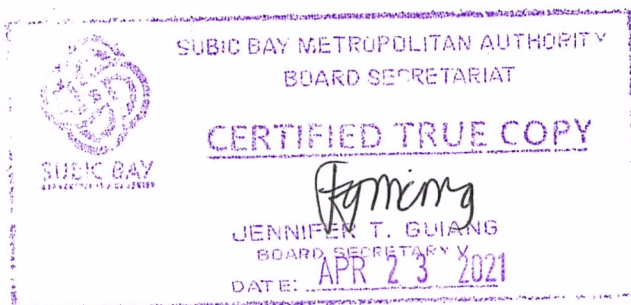 SUBIC BAY METROPOLITAN AUTHORITY
BOARD SECRETARIAT
CERTIFIED TRUE COPY
SUBIC BAY
JENNIFER T. GUIANG
BOARD SECRETARY V
DATE: APR 23 2021